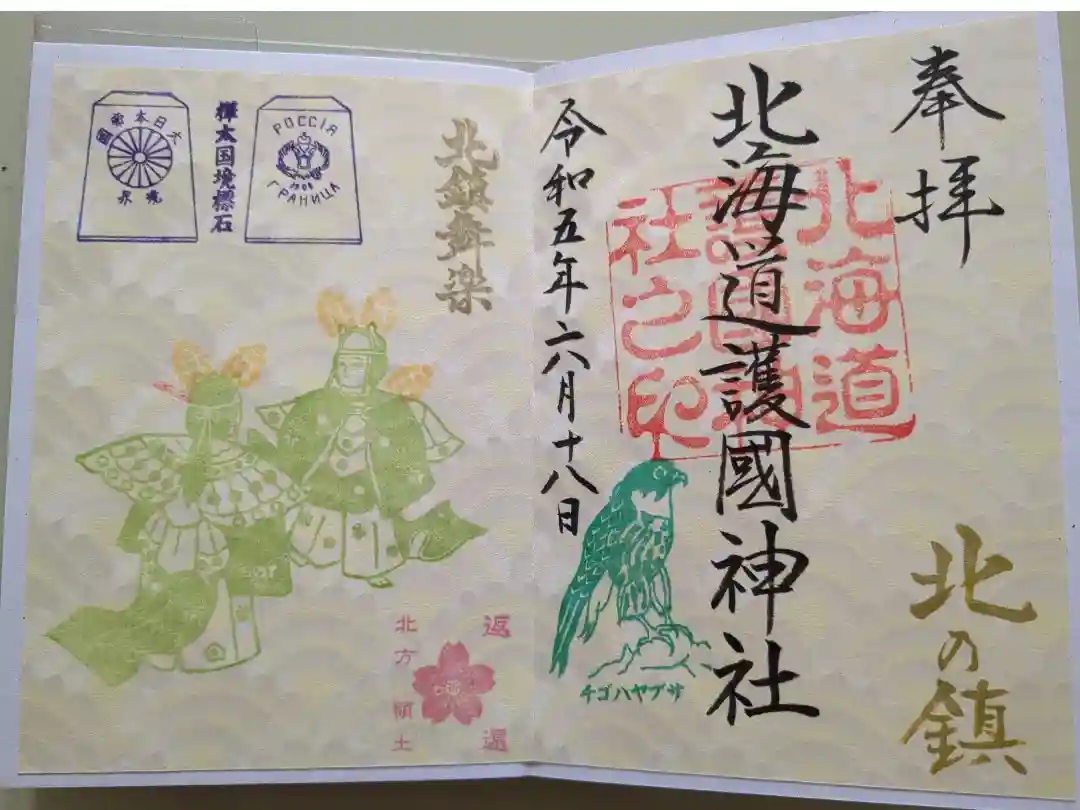 奉拝
北海道護國神社
北海道
護國神
社之印
北の鎮
令和五年六月十八日
チゴハヤブサ
北鎮舞楽
РОССІЯ
1906
ГРАНИЦА
樺太国境標石
大日本帝國
境界
返還
北方領土